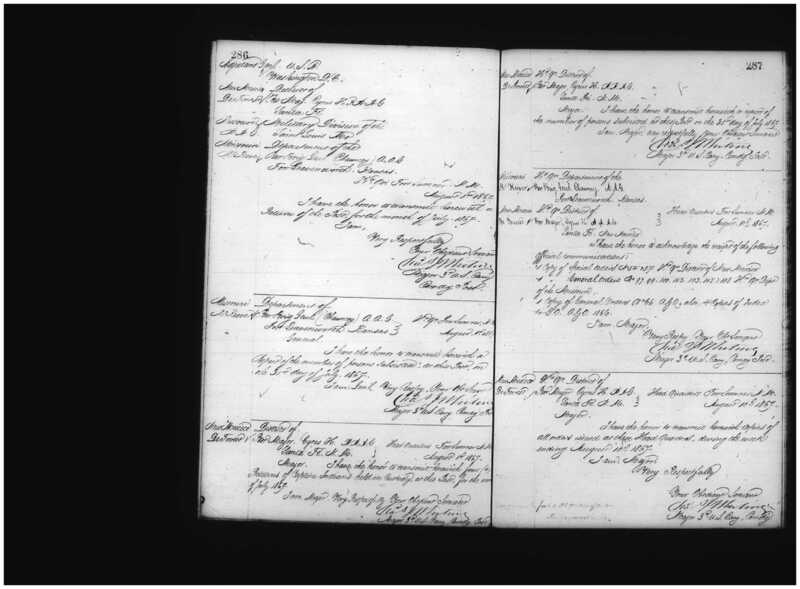 286
Adjutant Genl. U.S.A.
Washington D.C.
New Mexico District of
De Forrest Bvt Maj. Cyrus H. A.A.A.G
Santa Fe.
Military Division of the
Saint Louis Mo
Missouri Department of the
McKeever Bvt Brig Genl Chauncey A.A.G
Fort Leavenworth. Kansas.
Hd Qrs Fort Sumner. N.M.
August 1st 1867.
I have the honor to transmit herewith
Returns of the Post, for the month of July 1867.
I am,
Very Respectfully
Your Obedient Servant
Major 3d U.S. Cavy
Comdg Post.
Missouri Department of
McKeever Bvt Brig Genl Chauncey A.A.G
Fort Leavenworth Kansas
Hd Qrs Fort Sumner, N.M.
August 1st
General.
I have the honor to transmit herewith a
Report of the number of persons subsisted at this Post, on
the 31st day of July, 1867.
I am, Genl, Very Respy, Your Obt Servt
Major 3d U.S. Cavy Comdg Post
New Mexico District of
De Forrest Bvt Major Cyrus H. A.A.A.G
Santa Fe. N.M.
Head Quarters Fort Sumner N.M.
August 1st 1867.
Major. I have the honor to transmit herewith
Returns of Captive Indians held in Custody at this Post, for the
of July 1867
I am Major Very Respectfully Your Obedient Servant
Major 3d U.S. Cavy, Comdg Post
287
New Mexico Hd Qrs District of
De Forrest, Bvt Major Cyrus H. A.A.A.G.
Santa Fe. N.M.
Major. I have the honor to transmit herewith a report of
the number of persons subsisted at this Post on the 31st day of July 1867.
I am, Major, very respectfully, your Obedient Servant
Major 3d U.S. Cavy, Comdg Post.
Missouri Hd Qrs Department of the
McKeever Bvt Brig. Genl Chauncey, A.A.G.
Fort Leavenworth Kansas.
New Mexico Hd Qrs District of
De Forrest Bvt Major, Cyrus H. A.A.A.G
Santa Fe New Mexico
Head Quarters Fort Sumner N.M.
August 1867.
I have the honor to acknowledge the receipt of the following
official communications:
1 Copy of Special Orders No Hd Qrs District of New Mexico
General Orders Hd Qrs Dept
of the Missouri.
1 Copy of General Orders No A.G.O. also 4 Copies of Index
to G.O. A.G.O 1866.
I am Major,
Very Respy Your Obt Servant
Major 3d U.S. Cavy, Comdg Post.
New Mexico Hd Qrs District of
De Forrest, Bvt Major Cyrus H. A.A.A.G
Santa Fe N.M.
Head Quarters Fort Sumner N.M.
August 10th 1867.
Major.
I have the honor to transmit herewith copies of
all orders issued at these Head Quarters, during the week
ending August 10th 1867.
I am Major
Very Respectfully
Your Obedient Servant
Major 3d U.S. Cavy, Comdg